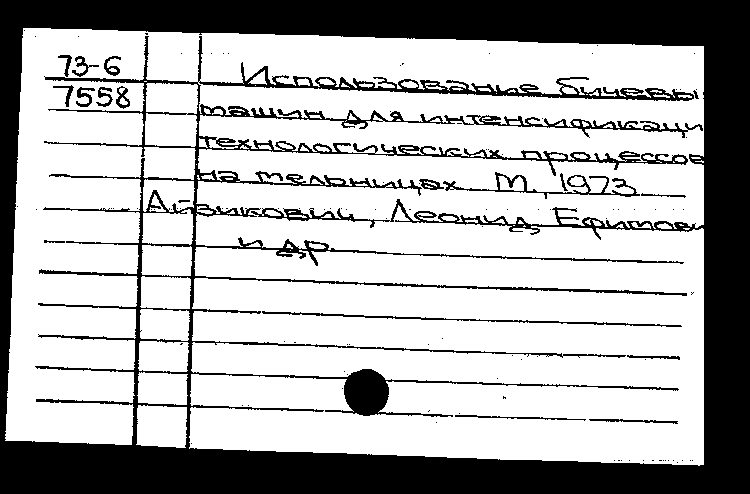 73-6
7558
Использование бичевы
машин для интенсификаци
технологических процессов
на мельницах М., 1973
Айзикович, Леонид Ефимови
и др.